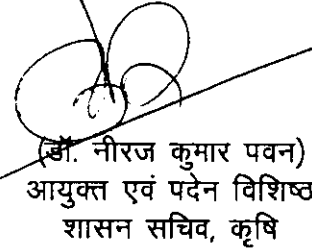 (डॉ. नीरज कुमार पवन)
आयुक्त एवं पदेन विशिष्ठ
शासन सचिव, कृषि